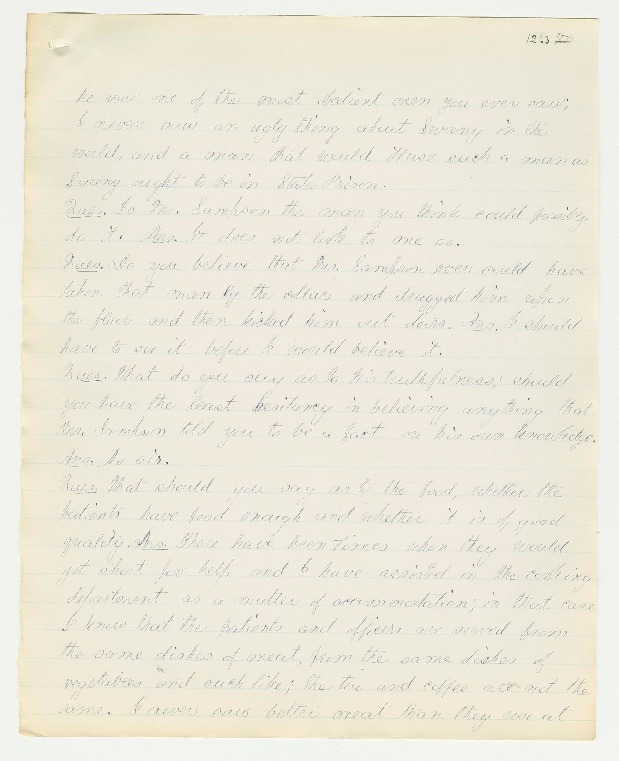 1263
he was one of the most patient men you ever saw;
I never saw an ugly thing about Sweeny in the
world, and a man that would abuse such a man as
Sweeny ought to be in State Prison.
Ques. Is Mr. Sampson the man you think could possibly
do it. Ans. It does not look to me so.
Ques. Do you believe that Mr. Sampson ever could have
taken that man by the collar and dragged him upon
the floor and then kicked him out doors. Ans. I should
have to see it before I would believe it.
Ques. What do you say as to his truthfulness; should
you have the least hesitancy in believing anything that
Mr. Sampson told you to be a fact in his own knowledge.
Ans. No sir.
Ques. What should you say as to the food, whether the
patients have food enough and whether it is of good
quality. Ans. There have been times when they would
get short for help and I have assisted in the cooking
department as a matter of accommodation; in that case
I know that the patients and officers are served from
the same dishes of meat, from the same dishes of
vegetables and such like; the tea and coffee are not the
same. I never saw better meat than they use at